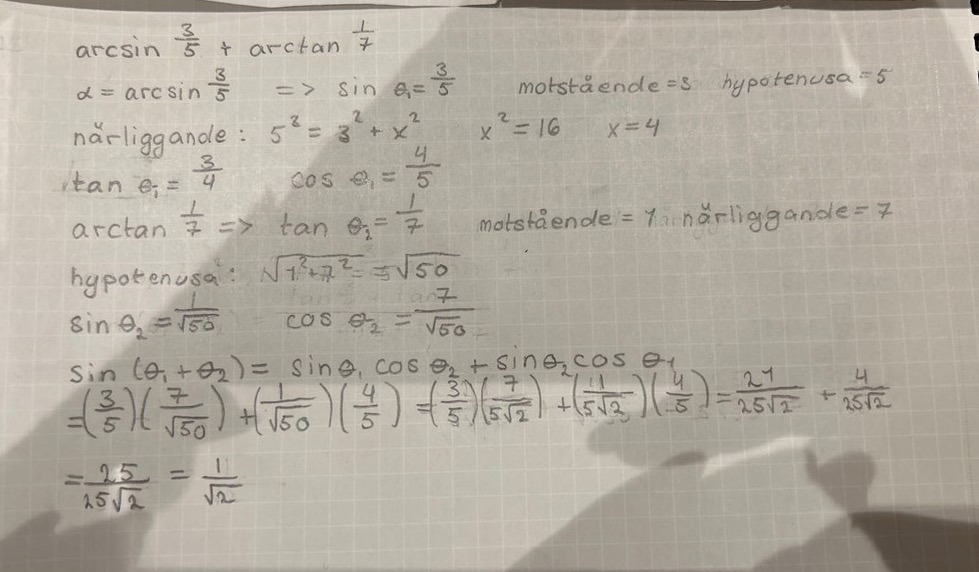 arcsin 3/5 + arctan 1/7
α = arcsin 3/5 => sin θ₁ = 3/5 motstående = 3 hypotenusa = 5
närliggande : 5² = 3² + x² x² = 16 x = 4
tan θ₁ = 3/4 cos θ₁ = 4/5
arctan 1/7 => tan θ₂ = 1/7 motstående = 1 närliggande = 7
hypotenusa : √(1² + 7²) = √50
sin θ₂ = 1/√50 cos θ₂ = 7/√50
sin (θ₁ + θ₂) = sin θ₁ cos θ₂ + sin θ₂ cos θ₁
= (3/5)(7/√50) + (1/√50)(4/5) = (3/5)(7/5√2) + (1/5√2)(4/5) = 21/25√2 + 4/25√2
= 25/25√2 = 1/√2